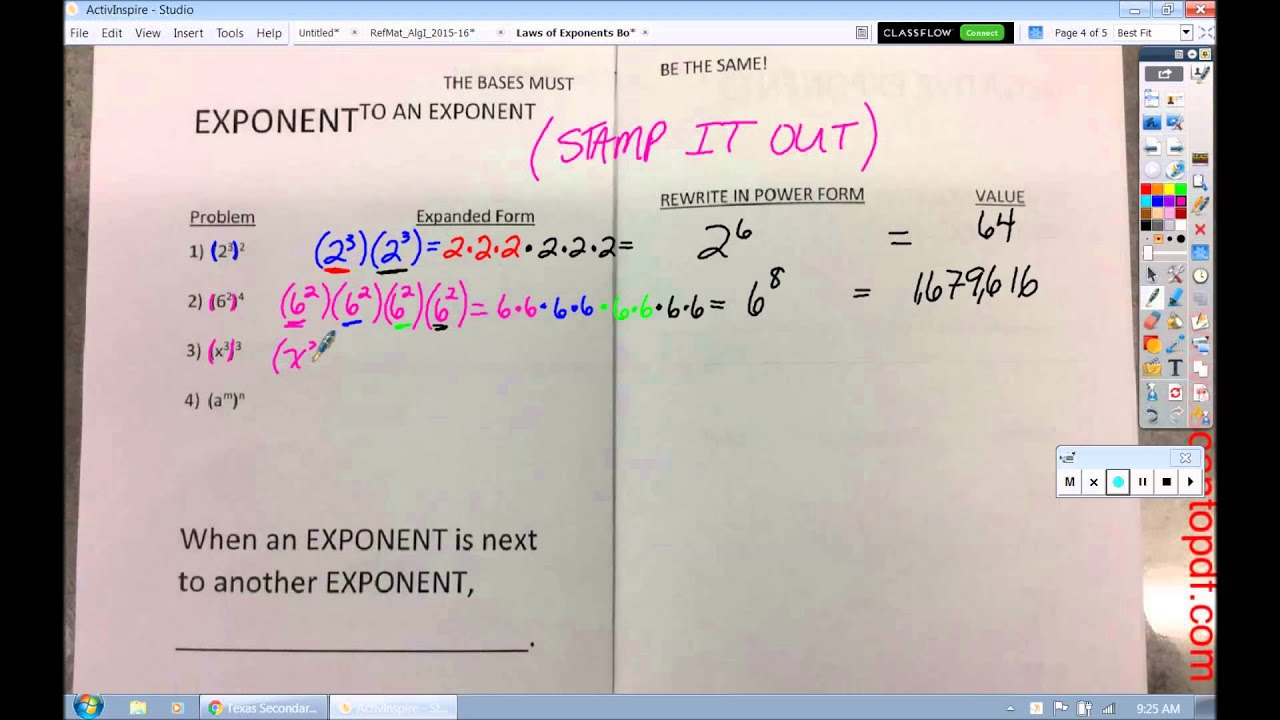 ActivInspire - Studio
File Edit View Insert Tools Help Untitled* RefMat_AlgI_2015-16* Laws of Exponents Bo* CLASSFLOW Connect Page 4 of 5 Best Fit
THE BASES MUST BE THE SAME!
EXPONENT TO AN EXPONENT
(STAMP IT OUT)
Problem Expanded Form REWRITE IN POWER FORM VALUE
1) (2³)² (2³)(2³) = 2·2·2·2·2·2 = 2⁶ = 64
2) (6²)⁴ (6²)(6²)(6²)(6²) = 6·6·6·6·6·6·6·6 = 6⁸ = 1,679,616
3) (x³)³ (x³
4) (aᵐ)ⁿ
M
When an EXPONENT is next
to another EXPONENT,
.
contopdf.com
Texas Secondar... ActivInspire - St... 9:25 AM